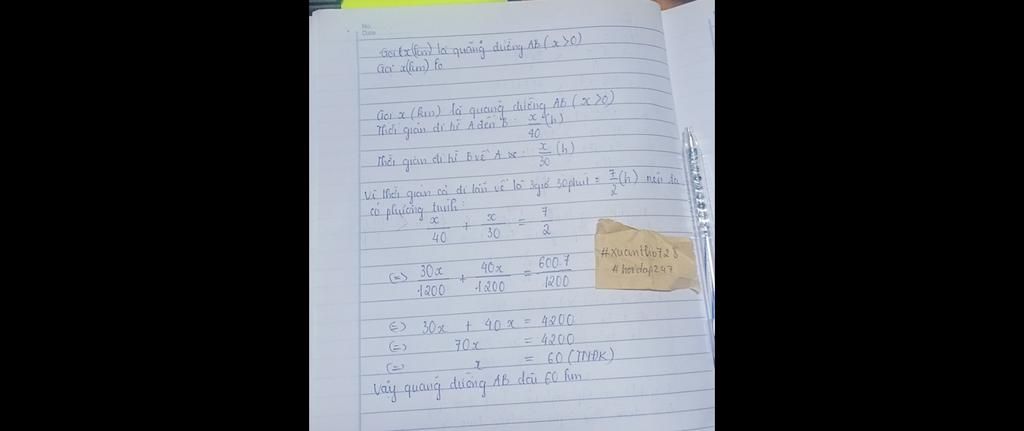 No.
Date
Gọi x(km) là quãng đường AB (x>0)
Gọi x(km) là
Gọi x (km) là quãng đường AB (x>0)
Thời gian đi từ A đến B: x/40 (h)
Thời gian đi từ B về A là: x/30 (h)
Vì thời gian cả đi lẫn về là 3 giờ 30 phút = 7/2 (h) nên ta
có phương trình:
x/40 + x/30 = 7/2
(=) 30x/1200 + 40x/1200 = 600.7/1200
(=) 30x + 40x = 4200
(=) 70x = 4200
(=) x = 60 (TMĐK)
Vậy quãng đường AB dài 60 km
#xuantho728
#hoidap247